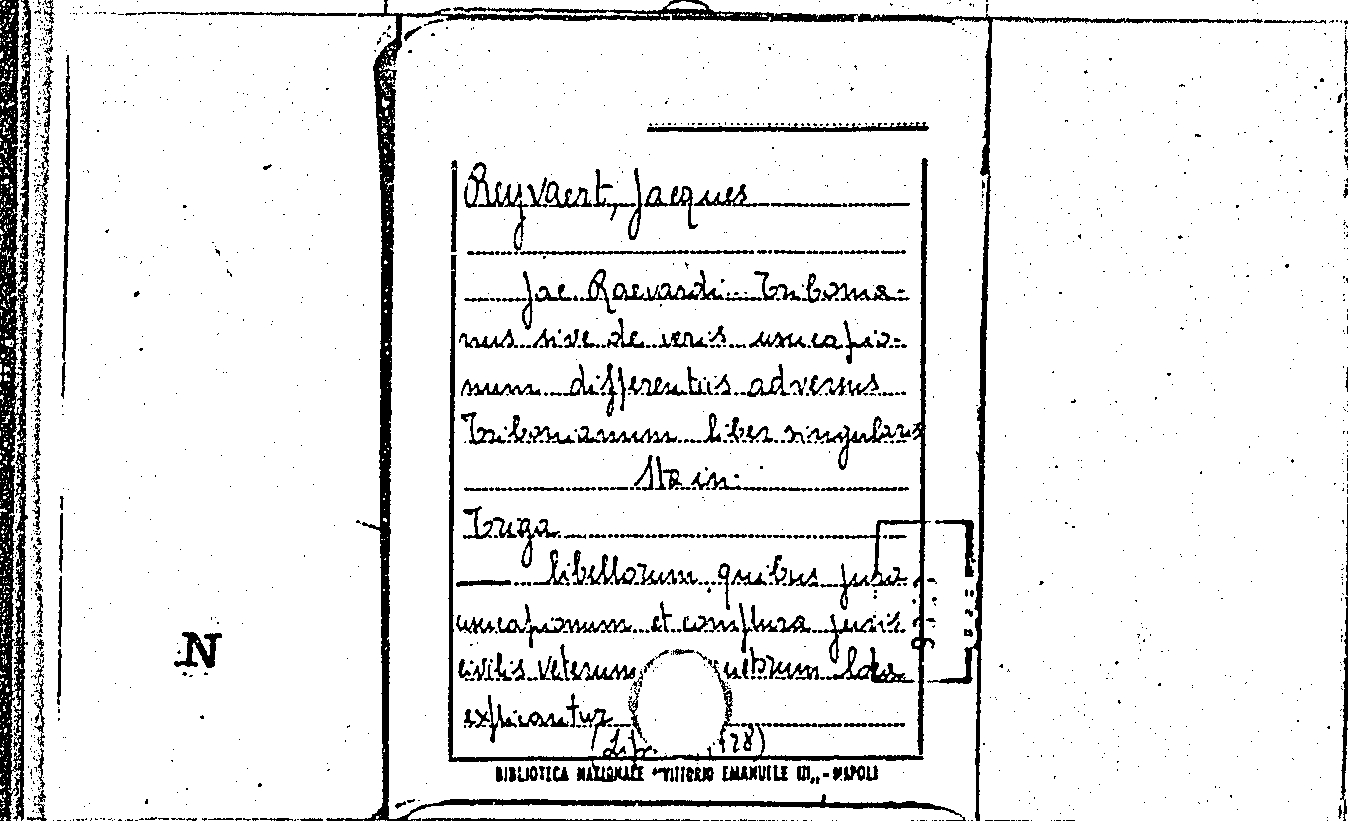 Reyvaert, Jacques
Jac Raevardi... Tribonia-
nus sive de veris usucapio-
num differentiis adversus
Tribonianum liber singularis
Sta in:
Triga
libellorum quibus jura
usucapionum et complura juris
civilis veterum loca
explicantur
N
BIBLIOTECA NAZIONALE "VITTORIO EMANUELE III,, - NAPOLI